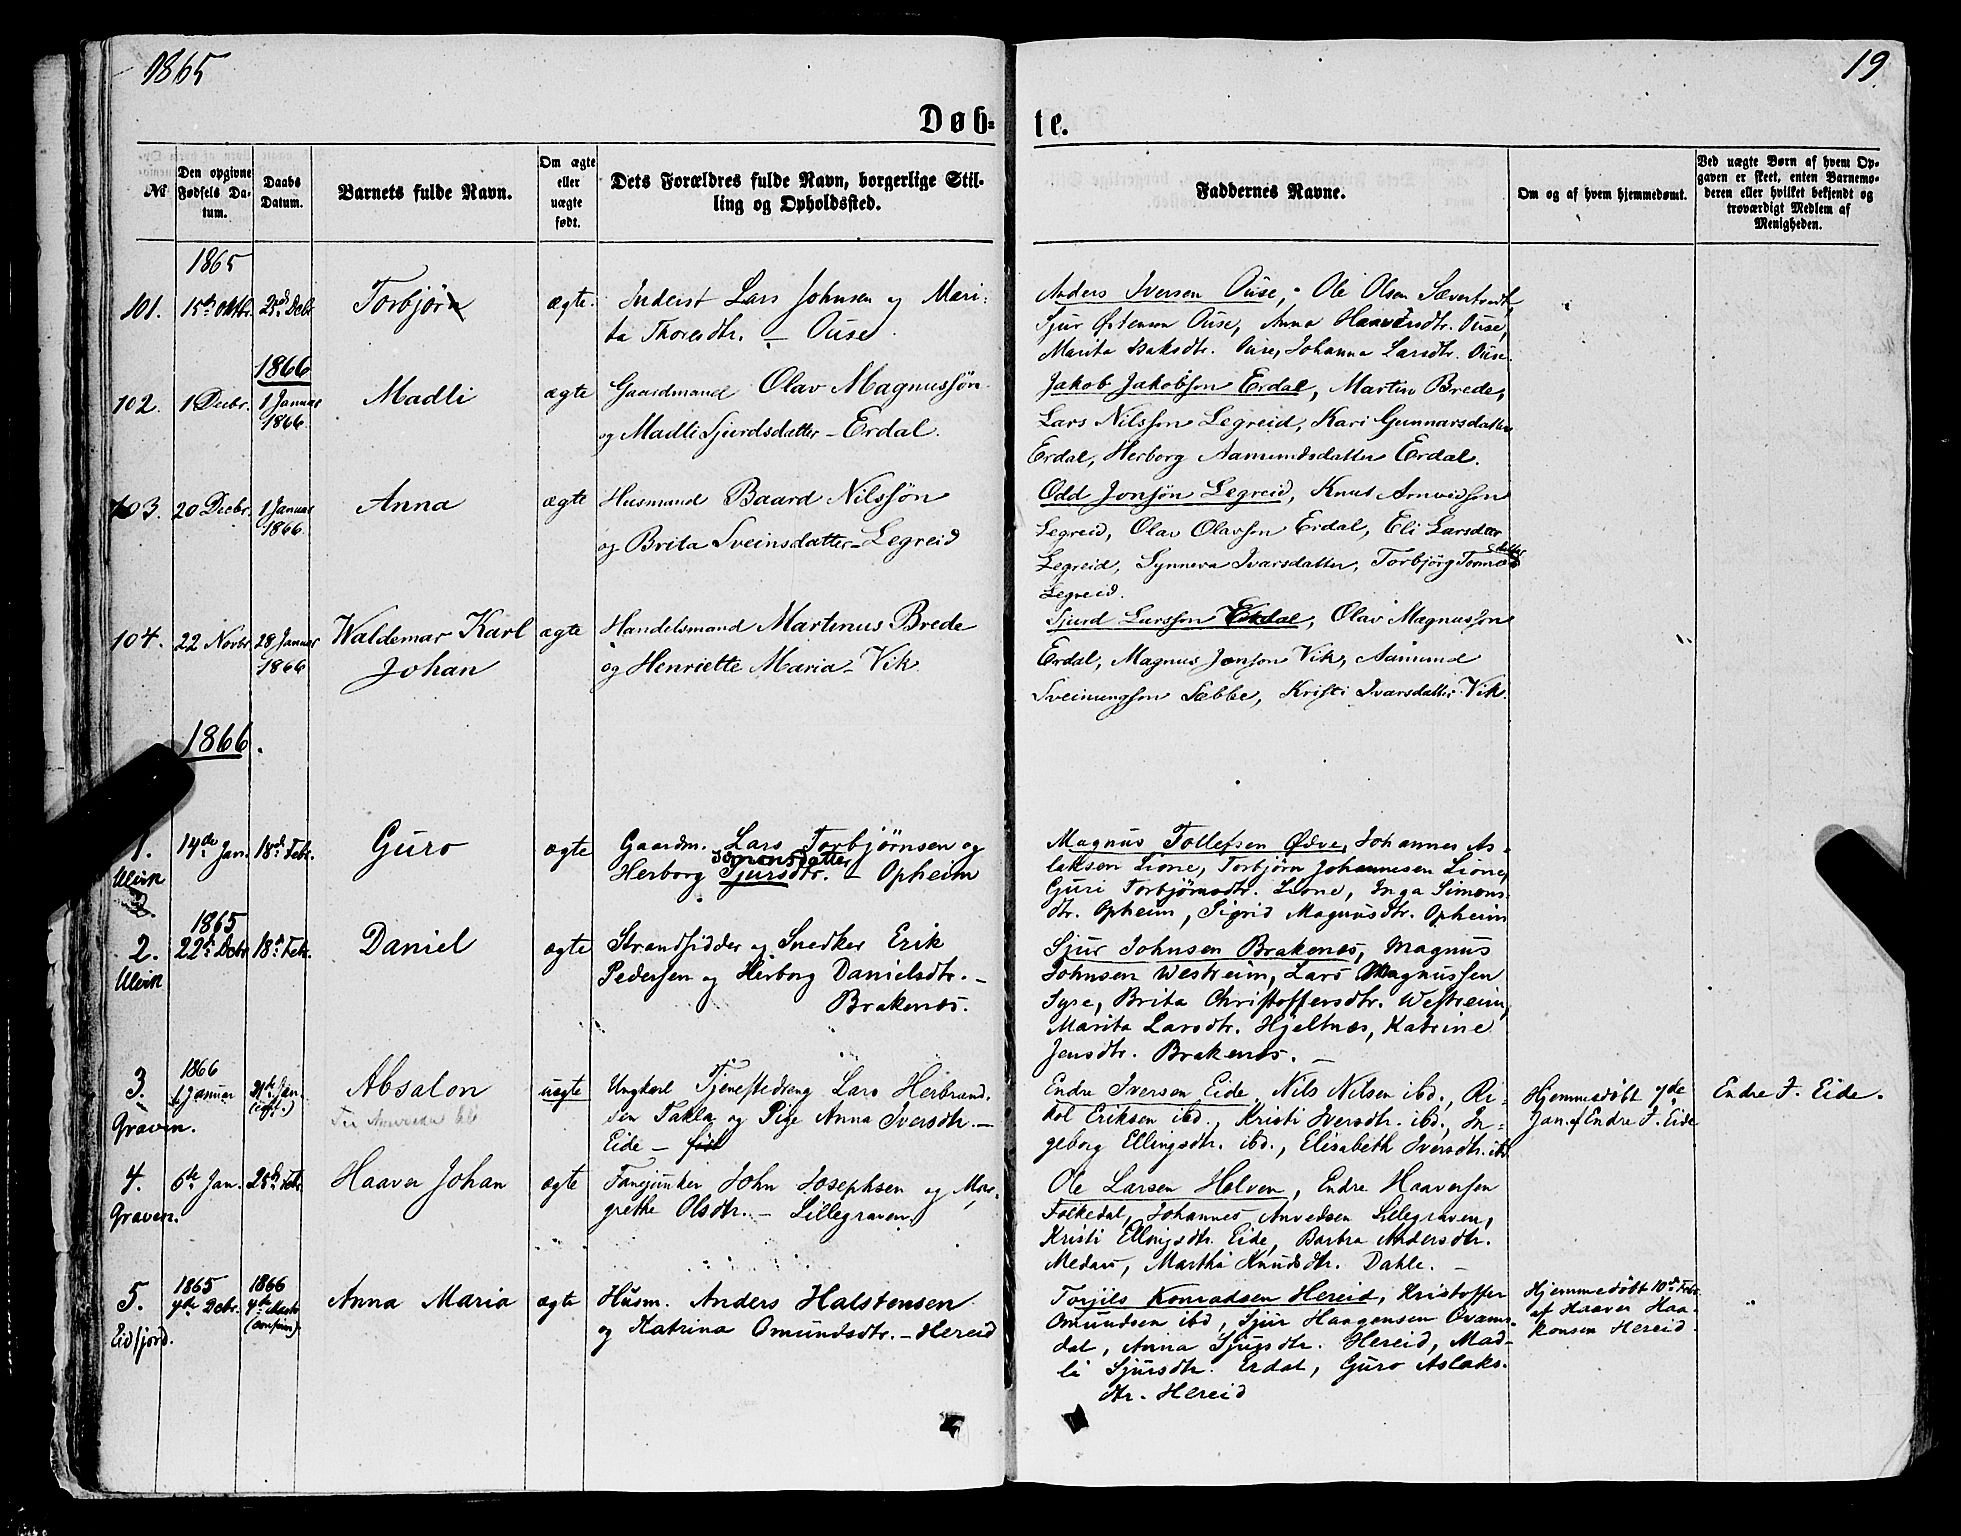 1865
19
Døb-
te.
№
Den opgivne Fødsels Da-tum.
Daabs Datum.
Barnets fulde Navn.
Om ægte eller uægte født.
Dets Forældres fulde Navn, borgerlige Stil-
ling og Opholdssted.
Faddernes Navne.
Om og af hvem hjemmedømt.
Ved uægte Børn af hvem Op-
gaven er skeet, enten Barnemo-
deren eller hvilket bekjendt og
troværdigt Medlem af
Menigheden.
1865
101. 15de Oktbr. 25de Debr Torbjørn ægte. Inderst Lars Johnsen og Mari-
ta Thoresdtr. – Ouse.
Anders Iversen Ouse, Ole Olsen
Sjur Østensen Ouse, Anna Haaversdtr. Ouse,
Marita Isaksdtr. Ouse, Johanna Larsdtr. Ouse.
1866
102. 1 Decbr. 1 Januar 1866 Madli ægte Gaardmand Olav Magnussøn
og Madli Sjurdsdatter – Erdal.
Jakob Jakobsson Erdal, Martin Brede,
Lars Nilsson Legreid, Kari Gunnarsdatter
Erdal, Herborg Aamundsdatter Erdal.
103. 20 Decbr. 1 Januar 1866 Anna ægte Husmand Baard Nilssøn
og Brita Sveinsdatter – Legreid
Odd Jonsøn Legreid, Knut Arnvidson
Legreid, Olav Olavson Erdal, Eli Larsdtter
Legreid, Synneva Ivarsdatter, Torbjørg
Legreid.
104. 22 Novbr 28 Januar 1866 Waldemar Karl
Johan
ægte Handelsmand Martinus Brede
og Henriette Maria – Vik
Sjurd Larsson Erdal, Olav Magnusson
Erdal, Magnus Jonson Vik, Aamund
Sveinungson Sæbbe, Kristi Ivarsdatter Vik.
1866.
1. Ulvik 14de Jan. 18de Febr. Guro ægte Gaardm. Lars Torbjørnsen og
Simonsdatter
Herborg Sjursdtr. – Opheim
Magnus Tollefsen Ødve, Johannes As-
laksen Lione, Torbjørn Johannesen Lione,
Guri Torbjørnsdtr. Lione, Inga Simons-
dtr. Opheim, Sigrid Magnusdtr. Opheim
1865
2. Ulvik 22de Debr 18de Febr. Daniel ægte Strandsidder og Snedker Erik
Pedersen og Herborg Danielsdtr. –
Brakenes.
Sjur Johnsen Brakenes, Magnus
Johnsen Westreim, Lars Magnussen
Syse, Brita Christoffersdtr. Westreim,
Marita Larsdtr. Hjeltnes, Katrine
Jensdtr. Brakenes. –
1866
3. Graven. 1 Januar 21de Jan. Absalon uægte Ungkarl Tjenestedreng Lars Herbrand-
sen Takla og Pige Anna Iversdtr. –
Eide –
Endre Iversen Eide, Nils Nilsen ibd., Ri-
kol Eriksen ibd., Kristi Iversdtr. ibd., In-
geborg Ellingsdtr. ibd., Elisabeth Iversdtr. ibd.
Hjemmedøbt 7de
Jan. af Endre I. Eide
Endre I. Eide.
4. Graven. 6te Jan. 25de Febr. Haaver Johan ægte Fanejunker John Josephsen og Mar-
grethe Olsdtr. – Lillegraven
Ole Larsen Helven, Endre Haaversen
Folkedal, Johannes Anvedsen Lillegraven,
Kristi Ellingsdtr. Eide, Barbra Andersdtr.
Medaas, Martha Knudsdtr. Dahle. –
1865 1866
5. Eidfjord. 7de Debr. Anna Maria ægte Husm. Anders Halstensen
og Katrina Omundsdtr. – Hereid
Torjils Konradsen Hereid, Kristoffer
Omundsen ibd, Sjur Haagensen Qvams-
dal, Anna Sjursdtr. Hereid, Mad-
li Sjursdtr. Erdal, Guro Aslaks-
dtr. Hereid
Hjemmedøbt 10de Febr.
af Haaver Haa-
konsen Hereid.